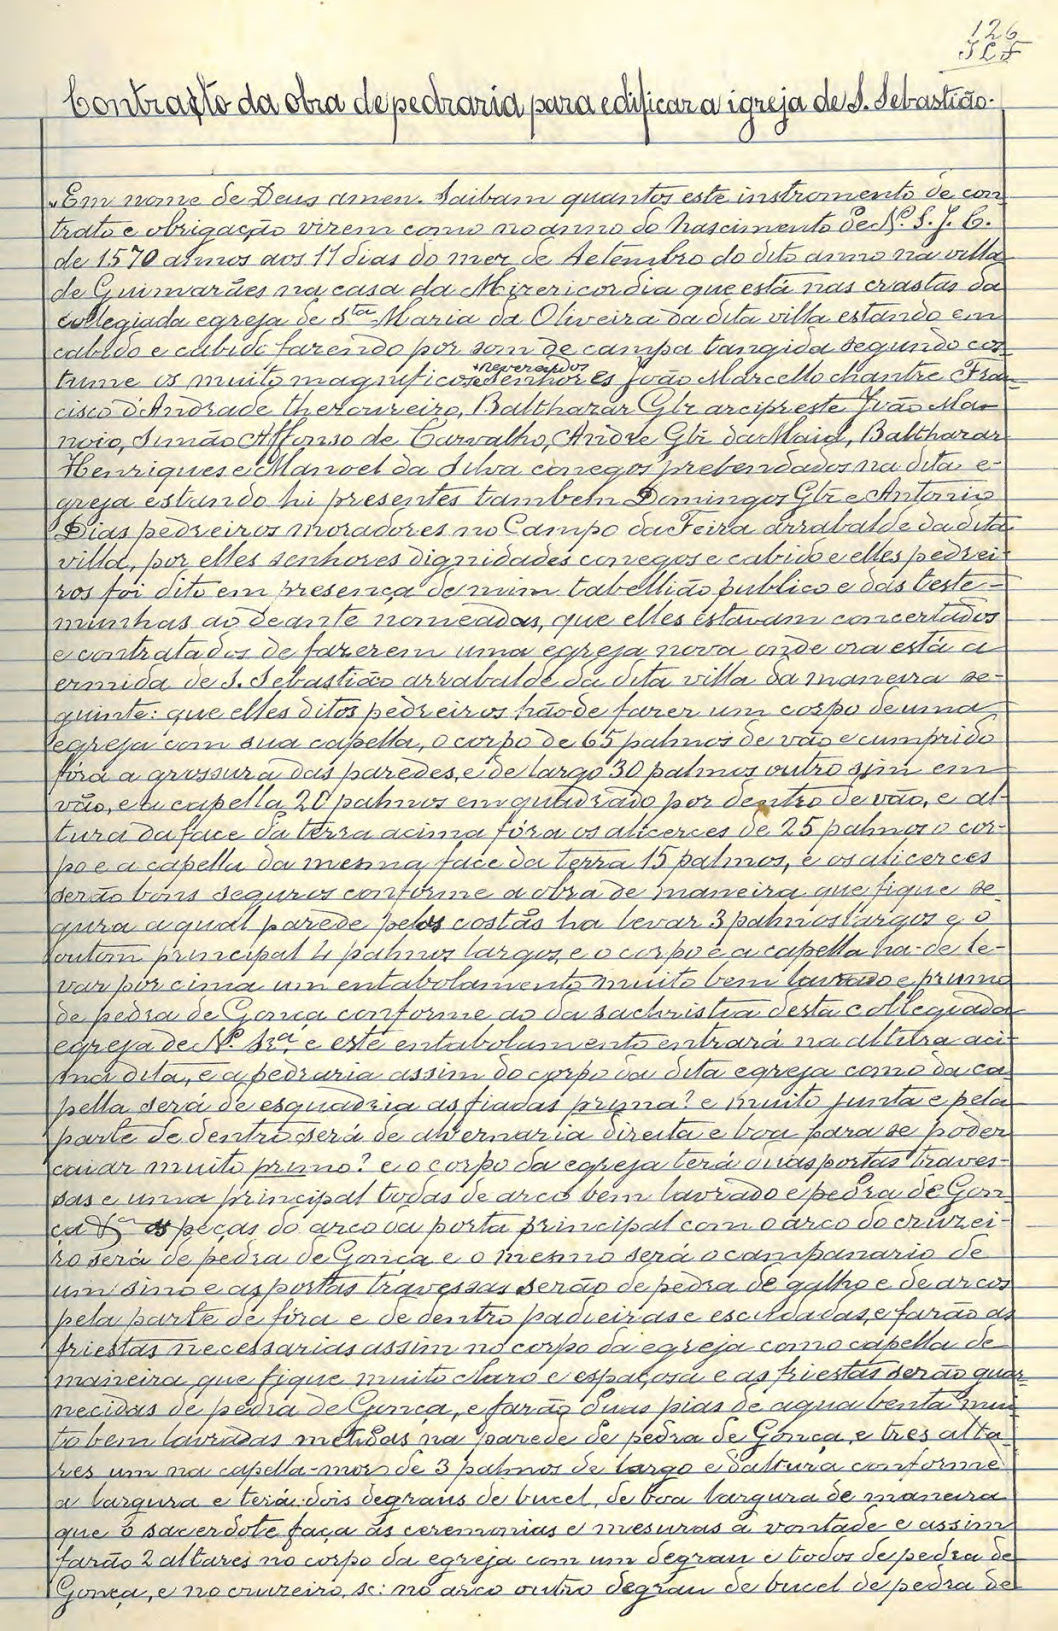 126
JLF
Contracto da obra de pedraria para edificar a igreja de S. Sebastião.
"Em nome de Deus amen. Saibam quantos este instromento de con
trato e obrigação virem como no anno do Nascimento de N. S. J. C.
de 1570 annos aos 17 dias do mez de Setembro do dito anno na villa
de Guimarães na casa da Mizericordia que está nas crastas da
collegiada egreja de Sta Maria da Oliveira da dita villa estando em
cabido e cabido fazendo por som de campa tangida segundo cos
reverendos
tume os muito magnificos e senhores João Marcello chantre Fran-
cisco d'Andrade thezoureiro, Balthazar Glz arcipreste João Ma-
noio, Simão Affonso de Carvalho, André Glz da Maia, Balthazar
Henriques e Manoel da Silva conegos prebendados na dita e-
greja estando hi presentes tambem Domingos Glz e Antonio
Dias pedreiros moradores no Campo da Feira arrabalde da dita
villa, por elles senhores dignidades conegos e cabido e elles pedrei-
ros foi dito em presença de mim tabellião publico e das teste-
munhas ao deante nomeadas, que elles estavam concertados
e contratados de fazerem uma egreja nova onde ora está a
ermida de S. Sebastião arrabalde da dita villa da maneira se-
guinte: que elles ditos pedreiros hão-de fazer um corpo de uma
egreja com sua capella, o corpo de 65 palmos de vão e cumprido
fóra a grossura das paredes, e de largo 30 palmos outro sim em
vão, e a capella 20 palmos em quadrado por dentro de vão, e al-
tura da face da terra acima fóra os alicerces de 25 palmos o cor-
po e a capella da mesma face da terra 15 palmos, e os alicerces
serão bons seguros conforme a obra de maneira que fique se-
gura a qual parede pelas costas ha levar 3 palmos largos e o
outom principal 4 palmos largos, e o corpo e a capella ha-de le-
var por cima um entabolamento muito bem lavrado e primo
de pedra de Gonça conforme ao da sachristia desta collegiada
egreja de N. Sra, e este entabolamento entrará na altura aci-
ma dita, e a pedraria assim do corpo da dita egreja como da ca
pella será de esquadria as fiadas prima? e muito junta e pela
parte de dentro será de alvernaria direita e boa para se poder
caiar muito primo? e o corpo da egreja terá duas portas traves-
sas e uma principal todas de arco bem lavrado e pedra de Gon
ça as peças do arco da porta principal com o arco do cruzei-
ro será de pedra de Gonça e o mesmo será o campanario de
um sino e as portas travessas serão de pedra de gylho e de arcos
pela parte de fóra e de dentro padieiras e escudadas, e farão as
friestas necessarias assim no corpo da egreja como capella de
maneira que fique muito claro e espaçosa e as friestas serão guar-
necidas de pedra de Gonça, e farão duas pias de agua benta mui
to bem lavradas metidas na parede de pedra de Gonça, e tres alta-
res um na capella-mor de 3 palmos de largo e d'altura conforme
a largura e terá dois degraus de bucel, de boa largura de maneira
que o sacerdote faça as ceremonias e mesuras á vontade e assim
farão 2 altares no corpo da egreja com um degrau e todos de pedra de
Gonça, e no cruzeiro, sc: no arco outro degrau de bucel de pedra de